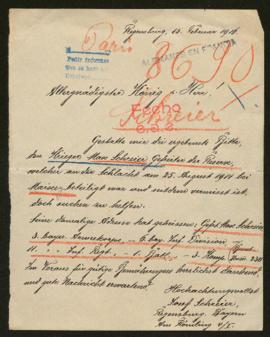 Regensburg, 13. Februar 1915.
Paris
ALLEMANDS EN FRANCE
8690
Allergnädigster König u. Herr!
Fecho
Scheier
Gestatte mir die ergebenste Bitte,
den Krieger Max Scheier Gefreiter der Reserve,
welcher an der Schlacht am 25. August 1914 bei
beteiligt war und seitdem vermisst ist,
doch suchen zu helfen.
Seine damalige Adresse hat geheissen: Gefr. Max Scheier
3. bayer. Armeekorps 6. bay. Inf. Division
11. Inf. Regt. 1. Batl. 3. Komp.
Im Voraus für gütige Bemühungen herzlichst dankend,
und gute Nachricht erwartend!
Hochachtungsvollst
Josef Scheier,
Regensburg, Bayern
Am Römling